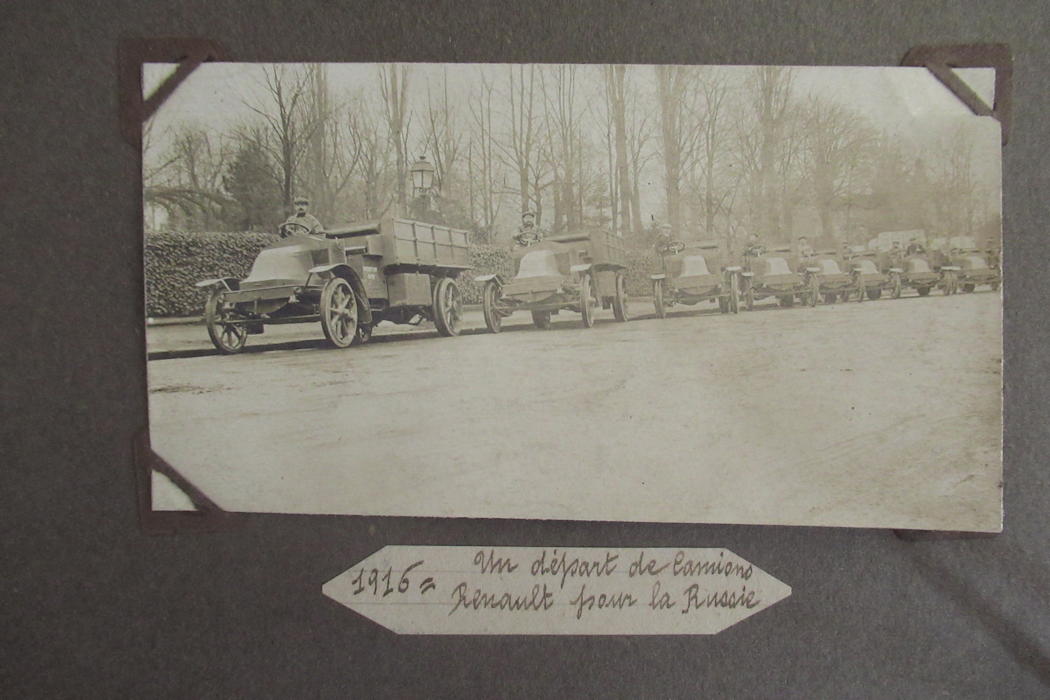 1916 = Un départ de Camions
Renault pour la Russie